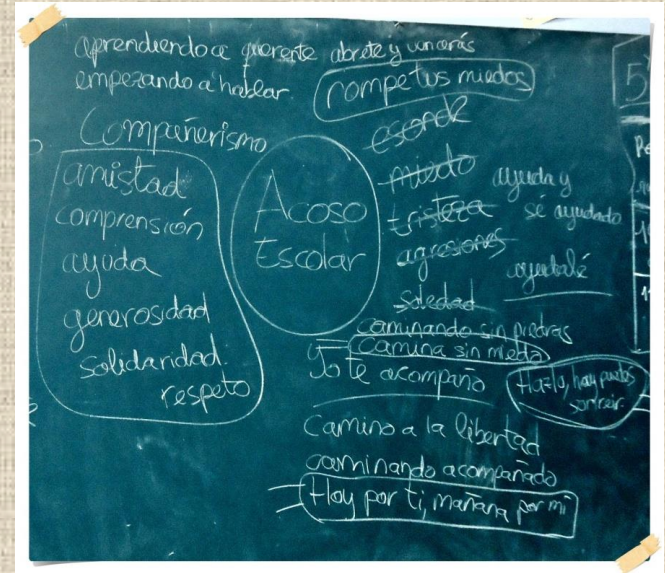 aprendiendo a quererte abrete y vencerás
empezando a hablar.
rompe tus miedos
Compañerismo
amistad
comprensión
ayuda
generosidad
solidaridad.
respeto
Acoso
Escolar
esconde
miedo
tristeza
agresiones
soledad
ayuda y
sé ayudado
ayudalé
caminando sin piedras
camina sin miedo
Yo te acompaño
Hazlo, hay
sonreir.
Camino a la libertad
caminando acompañado
Hoy por ti, mañana por mi
5